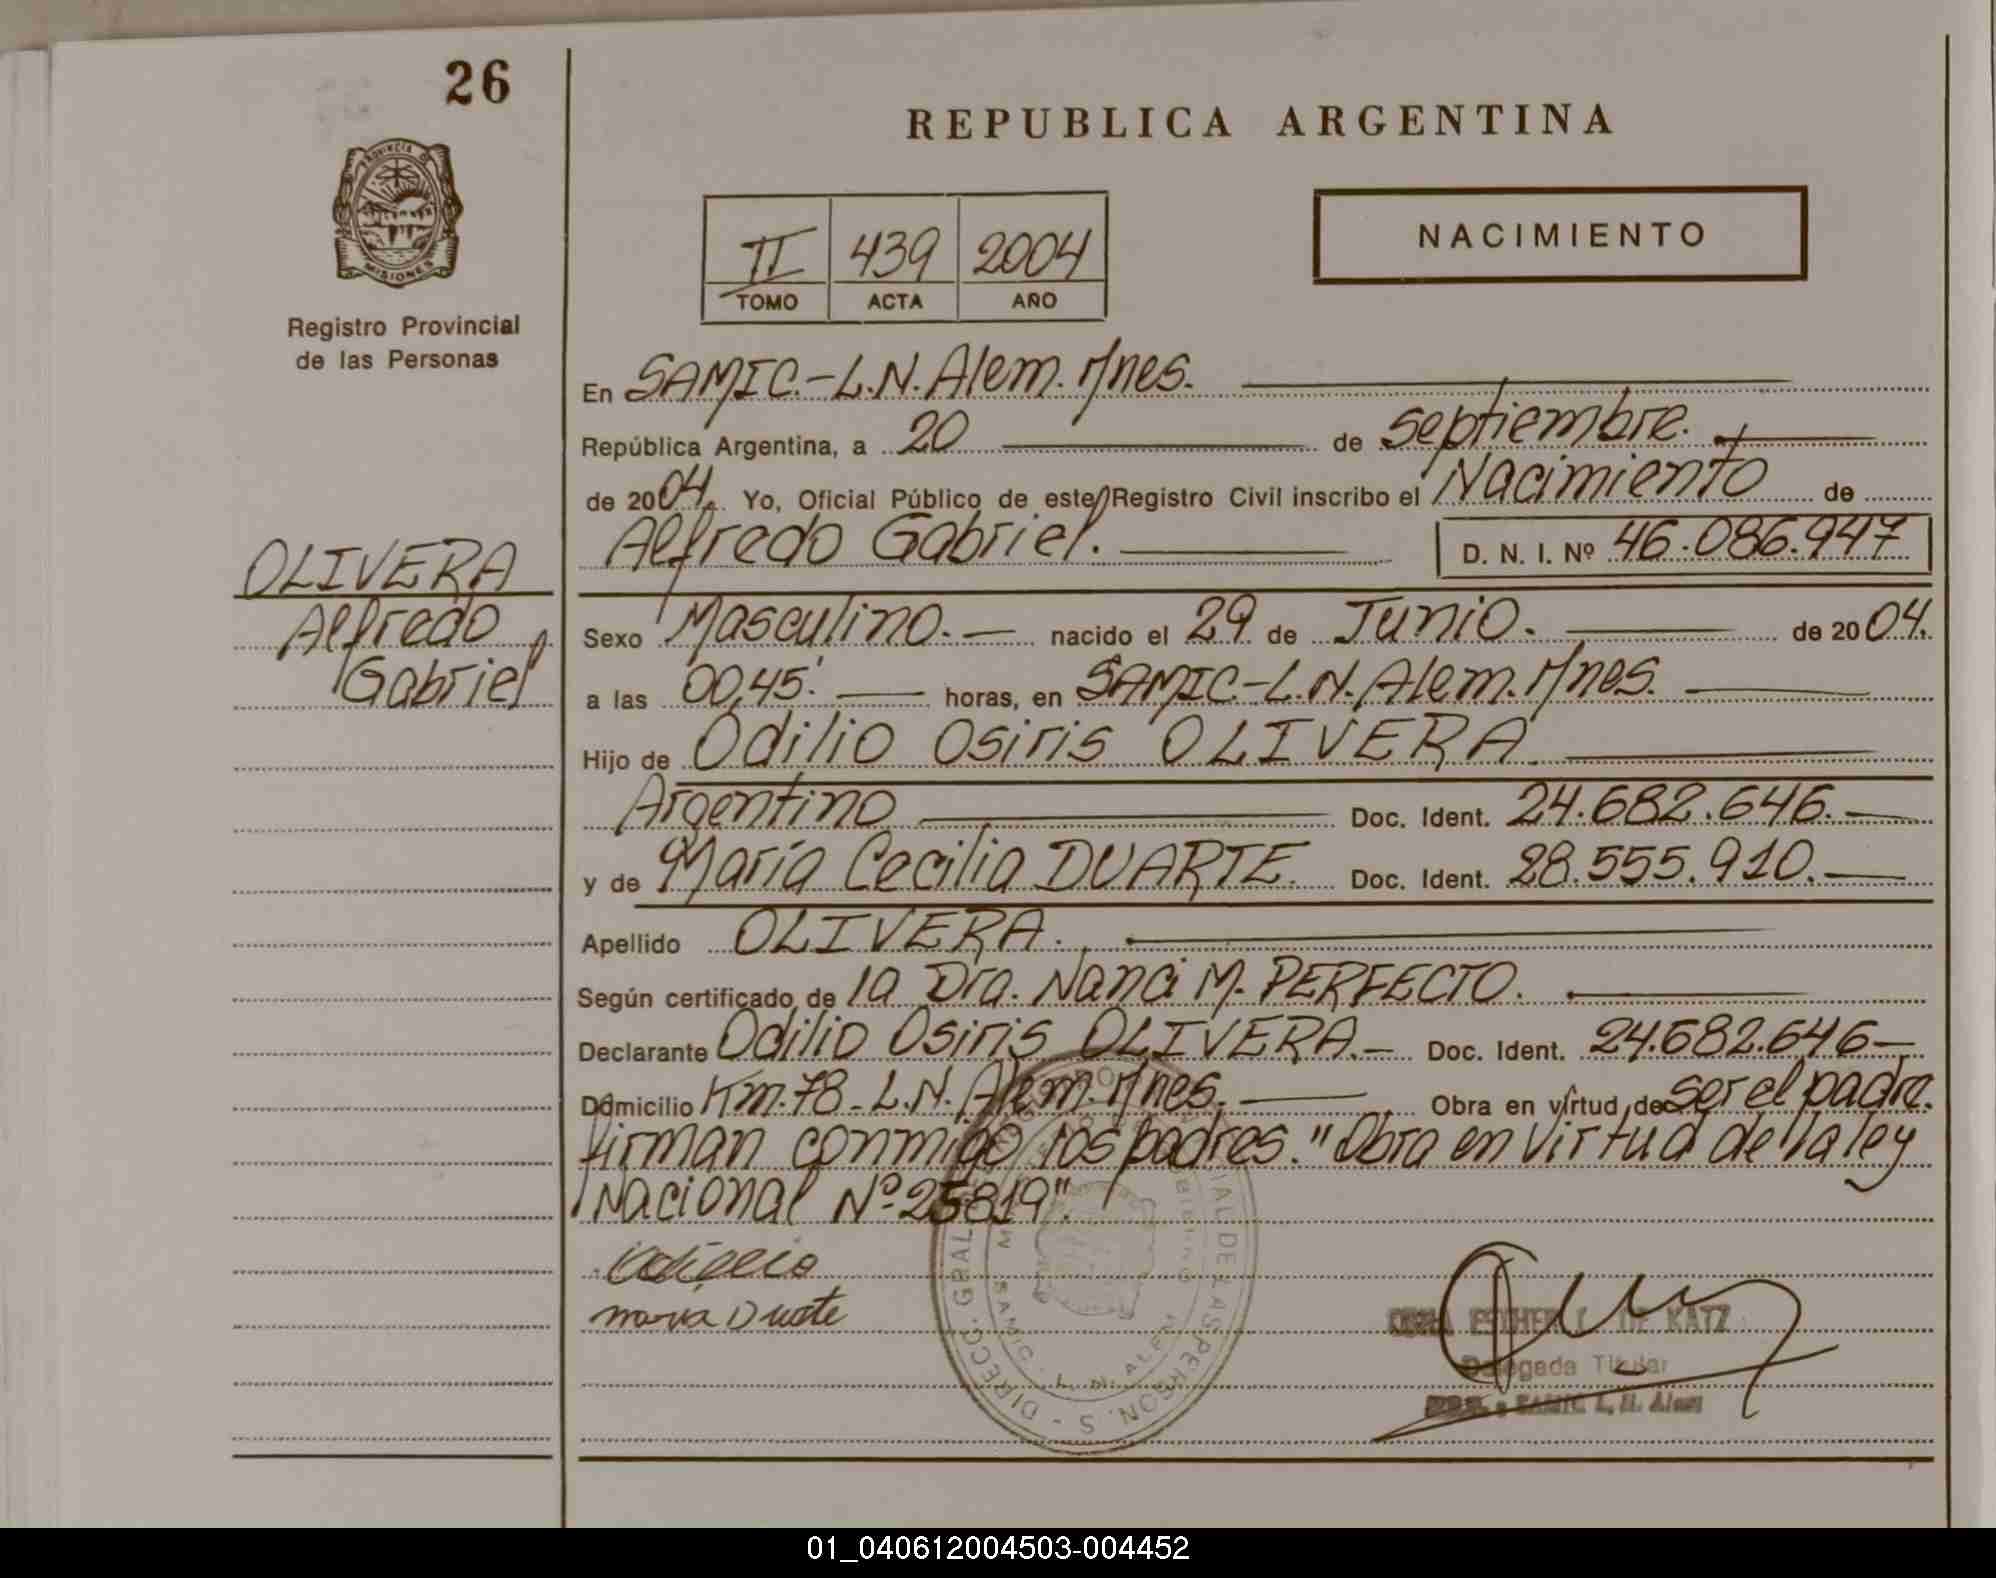 26
REPUBLICA ARGENTINA
PROVINCIA DE
MISIONES
Registro Provincial
de las Personas
II 439 2004
TOMO ACTA AÑO
NACIMIENTO
En SAMIC.-L.N.Alem.Mnes.
República Argentina, a 20 de septiembre.
de 2004. Yo, Oficial Público de este Registro Civil inscribo el Nacimiento de
Alfredo Gabriel. D. N. I. Nº 46.086.947
OLIVERA
Alfredo
Gabriel
Sexo Masculino.- nacido el 29 de Junio. de 2004.
a las 00,45'. horas, en SAMIC-L.N.Alem.Mnes.
Hijo de Odilio Osiris OLIVERA
Argentino Doc. Ident. 24.682.646.-
y de María Cecilia DUARTE. Doc. Ident. 28.555.910.-
Apellido OLIVERA.
Según certificado de la Dra. Nanci M. PERFECTO.
Declarante Odilio Osiris OLIVERA.- Doc. Ident. 24.682.646-
Domicilio Km.78-L.N.Alem.Mnes. Obra en virtud de ser el padre.
firman conmigo los padres."Obra en virtud de la ley
Nacional Nº 25819".
maria Duarte
DIRECC. GRAL. DE LAS PERSON.S
SAMIC. L. N. ALEM
ESTHER L. DE KATZ
Delegada Titular
SAMIC L. N. Alem
01_040612004503-004452